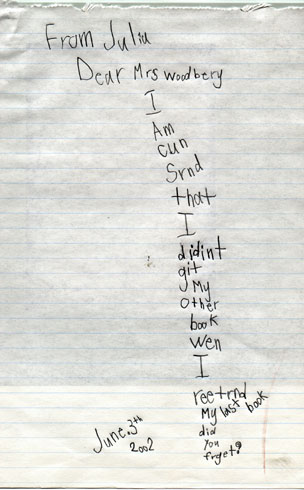 From Julia
Dear Mrs Woodbery
I
Am
cun
Srnd
that
I
didint
git
My
other
book
wen
I
reetrnd
My last book
did
you
frget?
June.3th
2002